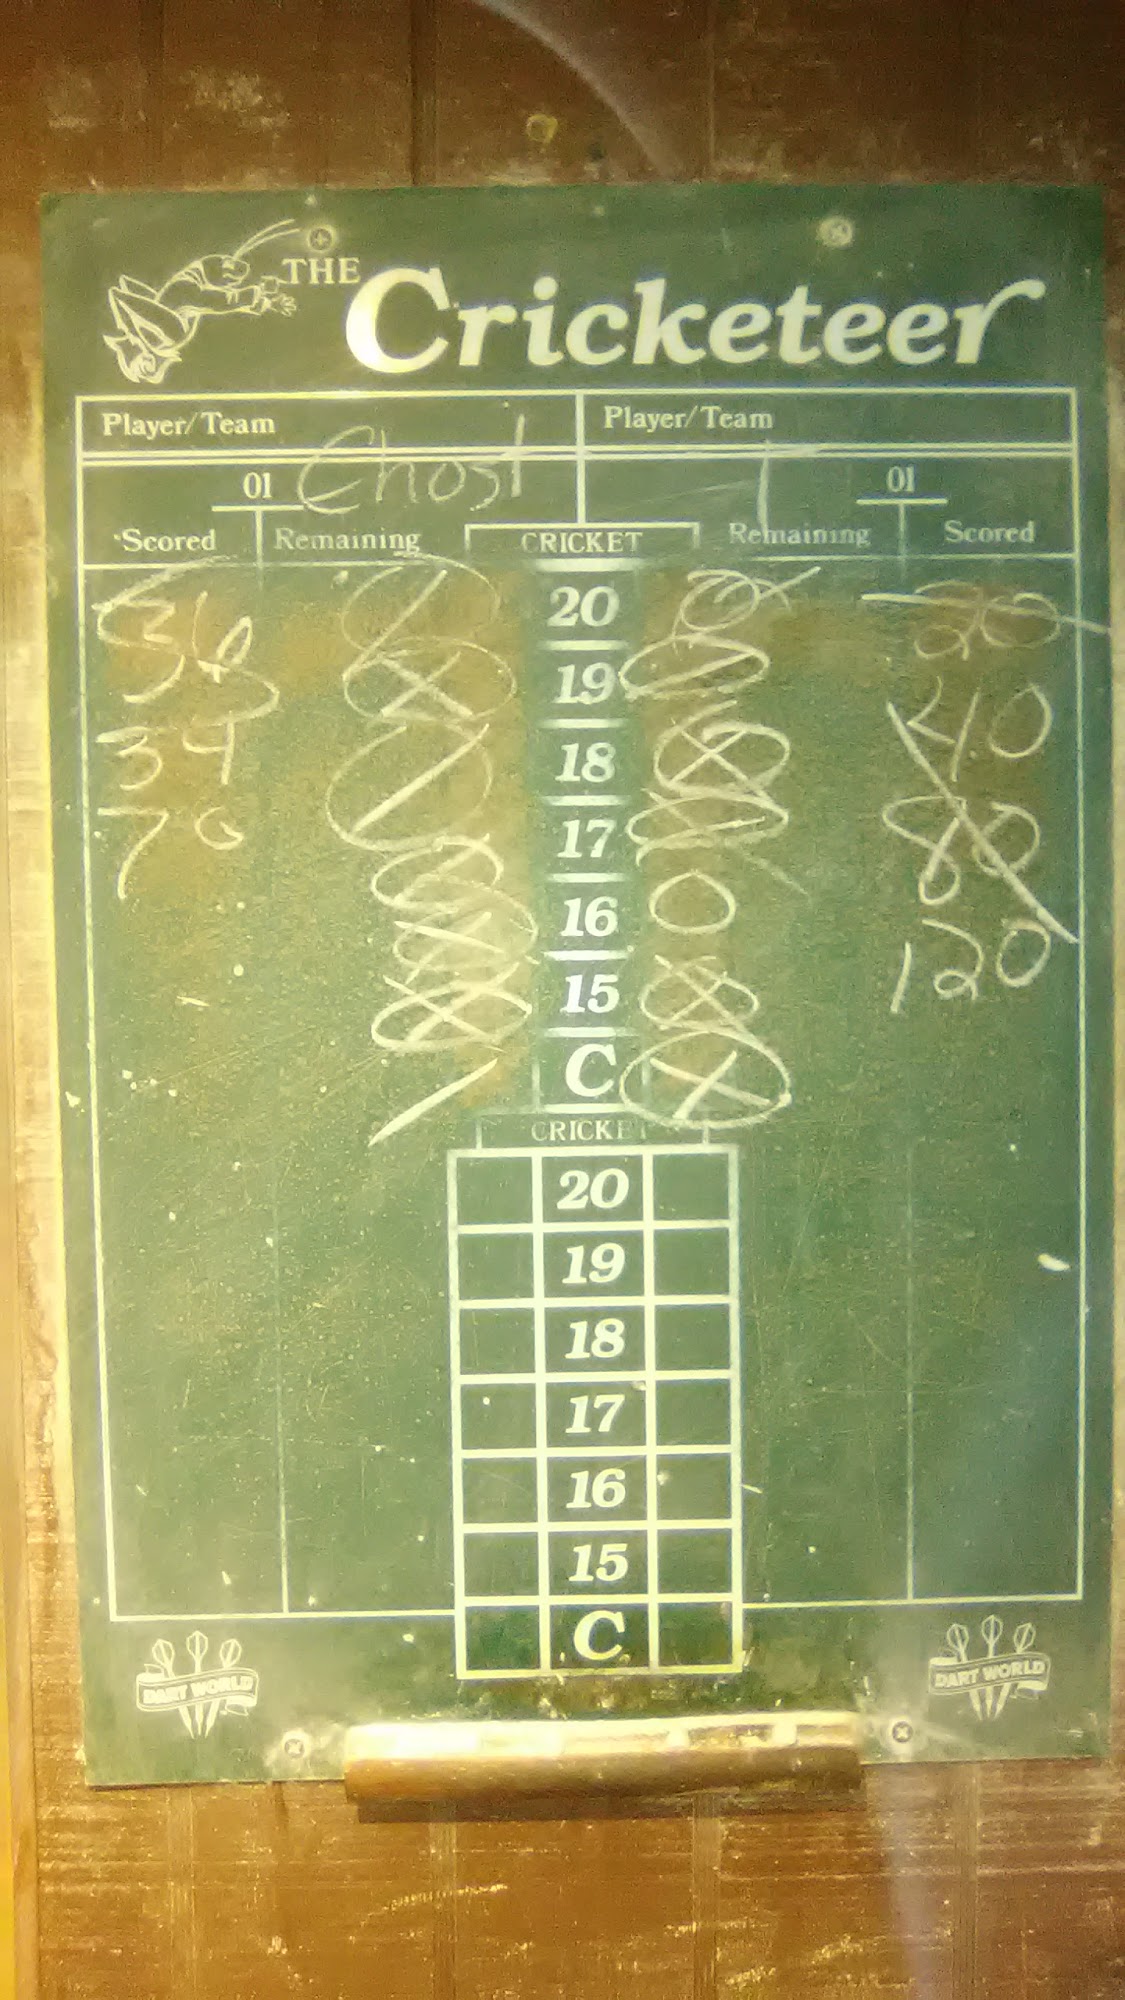 THE Cricketeer
Player/Team
Player/Team
01
01
Scored
Remaining
CRICKET
Remaining
Scored
36
34
70
20
19
18
17
16
15
C
20
40
80
120
CRICKET
20
19
18
17
16
15
C
DART WORLD
DART WORLD